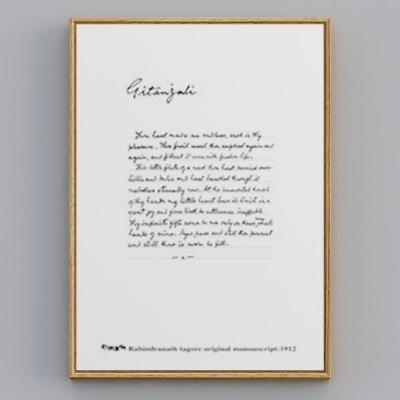 Gitanjali
Thou hast made me endless, such is thy
pleasure. This frail vessel thou emptiest again and
again, and fillest it ever with fresh life.
This little flute of a reed thou hast carried over
hills and dales and hast breathed through it
melodies eternally new. At the immortal touch
of thy hands my little heart loses its limits in a
great joy and gives birth to utterance ineffable.
Thy infinite gifts come to me only on these small
hands of mine. Ages pass and still thou pourest
and still there is room to fill.
Rabindranath tagore original 1912